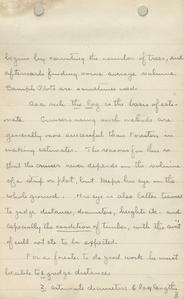 begins by counting the number of trees, and
afterwards finding some average volume.
Sample Plots are sometimes used.
As a rule the log is the basis of esti-
mate. Cruisers using such methods are
generally more successful than Foresters in
making estimates. The reason for this is
that the cruiser never depends on the volume
of a strip or plot, but keeps his eye on the
whole ground. His eye is also better trained
to judge distance, diameters, heights etc. and
especially the condition of timber, with the sort
of cull not to be expected.
For a forester to do good work he must
be able to judge distances
2. estimate diameters & log lengths